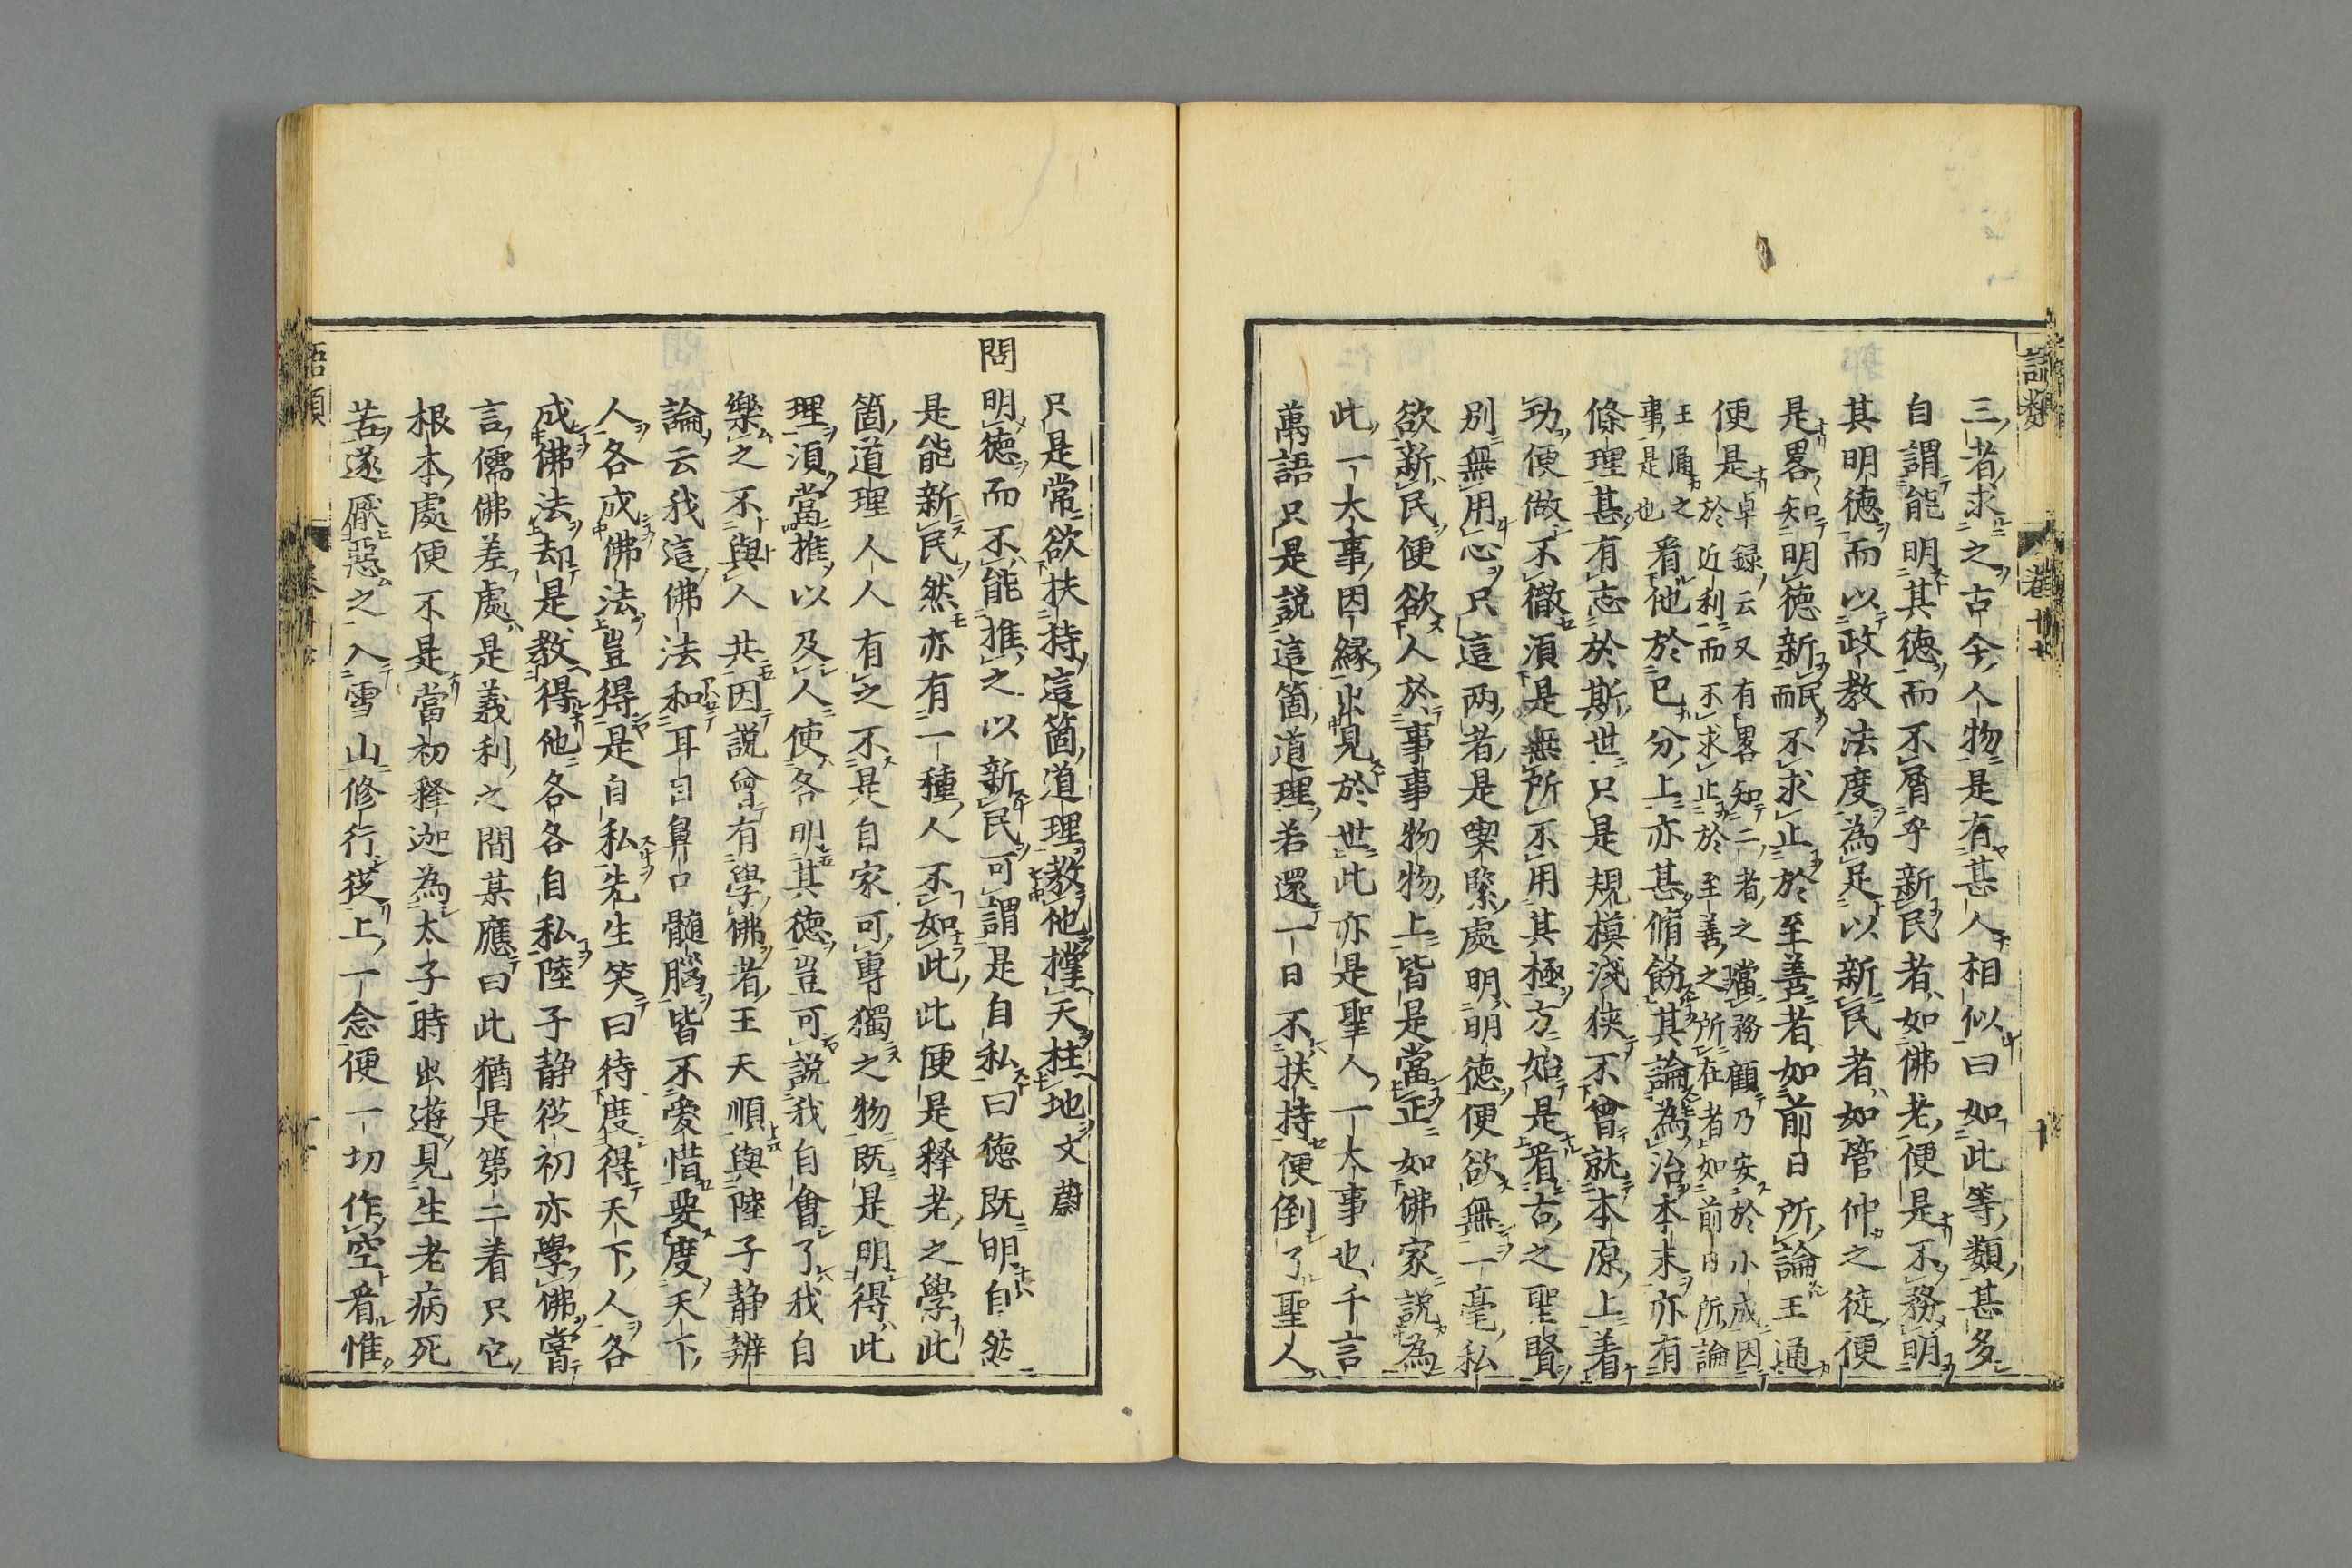 語類
卷十七
十
三者求之古今人物是有甚人相似曰如此等類甚多
自謂能明其德而不屑乎新民者如佛老便是不務明
其明德而以政教法度為足以新民者如管仲之徒便
是畧知明德新民而不求止於至善者如前日所論王通
便是卓録云又有畧知二者之當務顧乃安於小成因
於近利而不求止於至善之所在者如前日所論
王通之
事是也看他於已分上亦甚脩飭其論為治本末亦有
條理甚有志於斯世只是規模淺狹不曾就本原上着
功便做不徹須是無所不用其極方始是看古之聖賢
別無用心只這两者是喫緊處明明德便欲無一毫私
欲新民便欲人於事事物物上皆是當正如佛家説為
此一大事因縁出見於世此亦是聖人一大事也千言
萬語只是説這箇道理若還一日不扶持便倒了聖人
只是常欲扶持這箇道理教他撑天柱地文蔚
問明德而不能推之以新民可謂是自私曰德既明自然
是能新民然亦有一種人不如此此便是釋老之學此
箇道理人人有之不是自家可專獨之物既是明得此
理須當推以及人使各明其德豈可説我自會了我自
樂之不與人共因説曾有學佛者王天順與陸子静辨
論云我這佛法和耳目鼻口髄腦皆不愛惜要度天下
人各成佛法豈得是自私先生笑曰待度得天下人各
成佛法却是教得他各各自私陸子静從初亦學佛嘗
言儒佛差處是義利之間某應曰此猶是第二着只它
根本處便不是當初釋迦為太子時出遊見生老病死
苦遂厭惡之入雪山修行從上一念便一切作空看惟
語類